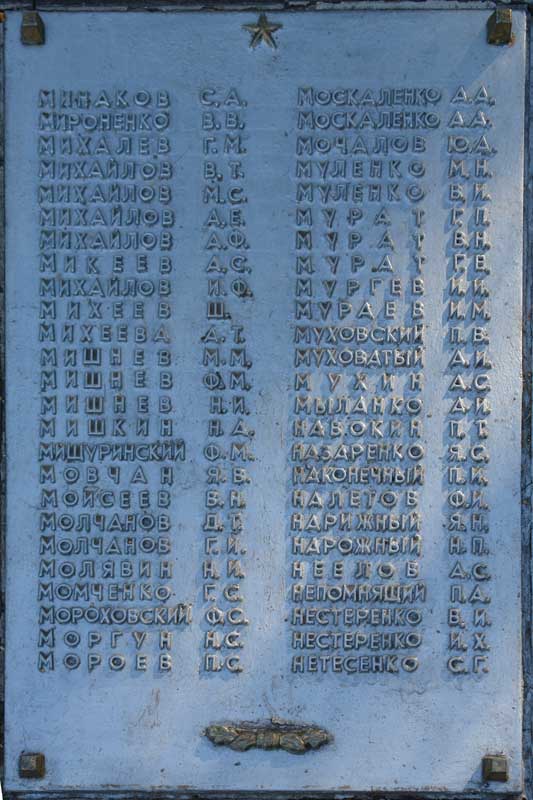 МИНАКОВ С.А.
МИРОНЕНКО В.В.
МИХАЛЕВ Г.М.
МИХАЙЛОВ В.Т.
МИХАЙЛОВ М.С.
МИХАЙЛОВ А.Е.
МИХАЙЛОВ А.Ф.
МИКЕЕВ А.С.
МИХАЙЛОВ И.Ф.
МИХЕЕВ Ш.
МИХЕЕВА А.Т.
МИШНЕВ М.М.
МИШНЕВ Ф.М.
МИШНЕВ Н.И.
МИШКИН Н.Д.
МИЩУРИНСКИЙ Ф.М.
МОВЧАН Я.В.
МОЙСЕЕВ В.Н.
МОЛЧАНОВ Д.Т.
МОЛЧАНОВ Г.И.
МОЛЯВИН Н.И.
МОМЧЕНКО Г.С.
МОРОХОВСКИЙ Ф.С.
МОРГУН Н.С.
МОРОЕВ П.С.
МОСКАЛЕНКО А.А.
МОСКАЛЕНКО А.А.
МОЧАЛОВ Ю.А.
МУЛЕНКО М.Н.
МУЛЕНКО В.И.
МУРАТ Г.П.
МУРАТ В.Н.
МУРАТ Г.Е.
МУРГЕВ И.И.
МУРАЕВ И.М.
МУХОВСКИЙ П.В.
МУХОВАТЫЙ А.И.
МУХИН А.С.
МЫЛАНКО А.И.
НАВОКИН П.Т.
НАЗАРЕНКО Я.С.
НАКОНЕЧНЫЙ П.И.
НАЛЕТОВ Ф.И.
НАРИЖНЫЙ Я.Н.
НАРОЖНЫЙ Н.П.
НЕЕЛОВ А.С.
НЕПОМНЯЩИЙ П.А.
НЕСТЕРЕНКО В.И.
НЕСТЕРЕНКО И.Х.
НЕТЕСЕНКО С.Г.